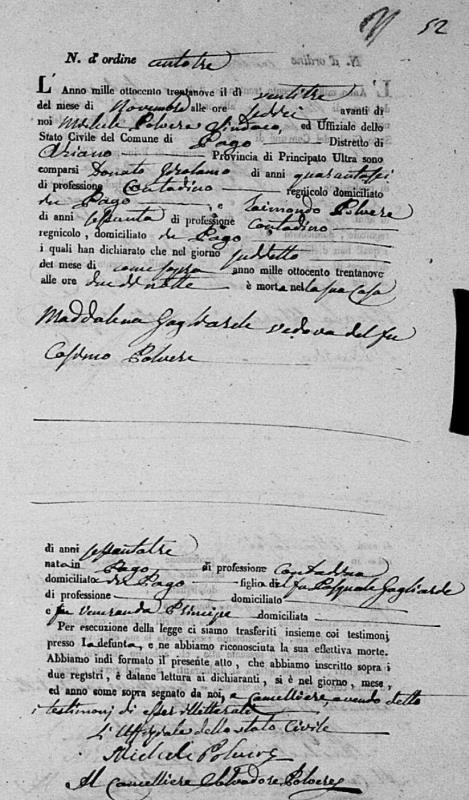 52
N. d'ordine
L'Anno mille ottocento trentanove il dì ventitre
del mese di Novembre alle ore sedici avanti di
noi Michele Polvere Sindaco, ed Uffiziale dello
Stato Civile del Comune di Pago Distretto di
Ariano Provincia di Principato Ultra sono
comparsi Donato Girolamo di anni quarantasei
di professione Contadino regnicolo domiciliato
in Pago, e Raimondo Polvere
di anni sessanta di professione Contadino
regnicolo, domiciliato in Pago
i quali han dichiarato che nel giorno suddetto
del mese di come sopra anno mille ottocento trentanove
alle ore due di notte è morta nella sua Casa
Maddalena Gagliarde vedova del fu
Cosimo Polvere
di anni sessantatre
nata in Pago di professione Contadina
domiciliato in Pago figlia del fu Pasquale Gagliarde
di professione domiciliato
e fu Veneranda Principe domiciliata
Per esecuzione della legge ci siamo trasferiti insieme coi testimonj
presso la defunta, e ne abbiamo riconosciuta la sua effettiva morte.
Abbiamo indi formato il presente atto, che abbiamo inscritto sopra i
due registri, è datane lettura ai dichiaranti, si è nel giorno, mese,
ed anno some sopra segnato da noi, e Cancelliere, avendo detto
i testimonj di esser illitterati
L'Uffiziale dello stato Civile
Michele Polvere
Il Cancelliere Salvadore Polvere